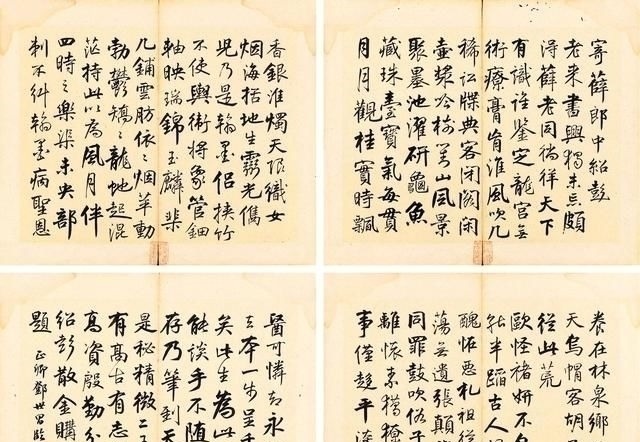 寄薛郎中紹彭
老來書興獨未忘頗
得薛老同徜徉天下
有識誰鑒定龍宮無
術療膏肓淮風吹几
稀訟牒典客閉閣閑
壺漿吟樹對山風景
聚墨池濯研龜魚
藏珠臺寶氣每貫
月月觀桂實時飄
香銀淮燭天限織女
烟海括地生靈光儁
兒乃是翰墨侶挾竹
不使輿衛將象管鈿
軸映瑞錦玉麟棐
几鋪雲肪依依烟華動
勃鬱矯矯龍蛇起混
茫持此以為風月伴
四時之樂渠未央部
刺不糾翰墨病聖恩
養在林泉鄉
天烏帽客胡
從此荒
歐怪褚妍不
半蹈古人
醜怪惡札祖從
蕩無遺張顛
同罪鼓吹俗子
離懷素獦獠
事僅趍平淡
醫可憐智永
去本一步呈千
矣此生為此
能談手不隨
存乃筆到天
是秘精微二
有高古有志
高資殷勤分
紹彭散金購
題 正卿鄧世